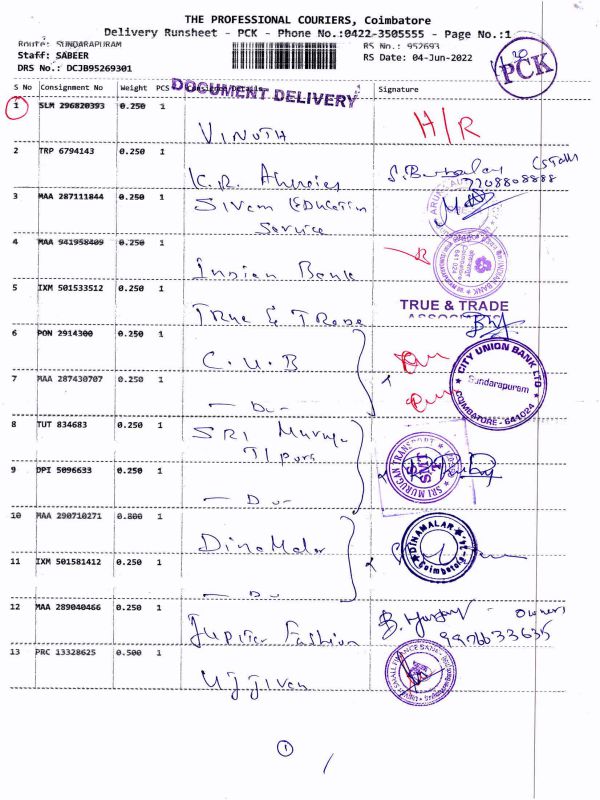 THE PROFESSIONAL COURIERS, Coimbatore
Delivery Runsheet - PCK - Phone No.:0422-3505555 - Page No.:1
Route: SUNDARAPURAM
RS No.: 952693
Staff: SABEER
RS Date: 04-Jun-2022
DRS No.: DCJB95269301
PCK
S No Consignment No Weight PCS Consignee Details Signature
DOCUMENT DELIVERY
1 SLM 296820393 0.250 1
VINOTH H/R
2 TRP 6794143 0.250 1
K.R.
7708808888
3 MAA 287111844 0.250 1
Sivam Education
Service
4 MAA 941958409 0.250 1
Indian Bank
INDIAN BANK
641 024
5 IXM 501533512 0.250 1
True & Trade
TRUE & TRADE
6 PON 2914300 0.250 1
C.U.B
CITY UNION BANK LTD
Sundarapuram
COIMBATORE - 641024
7 MAA 287430707 0.250 1
— Do —
8 TUT 834683 0.250 1
SRI
SRI MURUGAN TRANSPORT
SMT
9 DPI 5096633 0.250 1
— Do —
10 MAA 290710271 0.800 1
Dinamalar
DINAMALAR
Coimbatore-24.
11 IXM 501581412 0.250 1
— Do —
12 MAA 289040466 0.250 1
Jupiter Fashion
owners
9976633635
13 PRC 13328625 0.500 1
Ujjivan
1